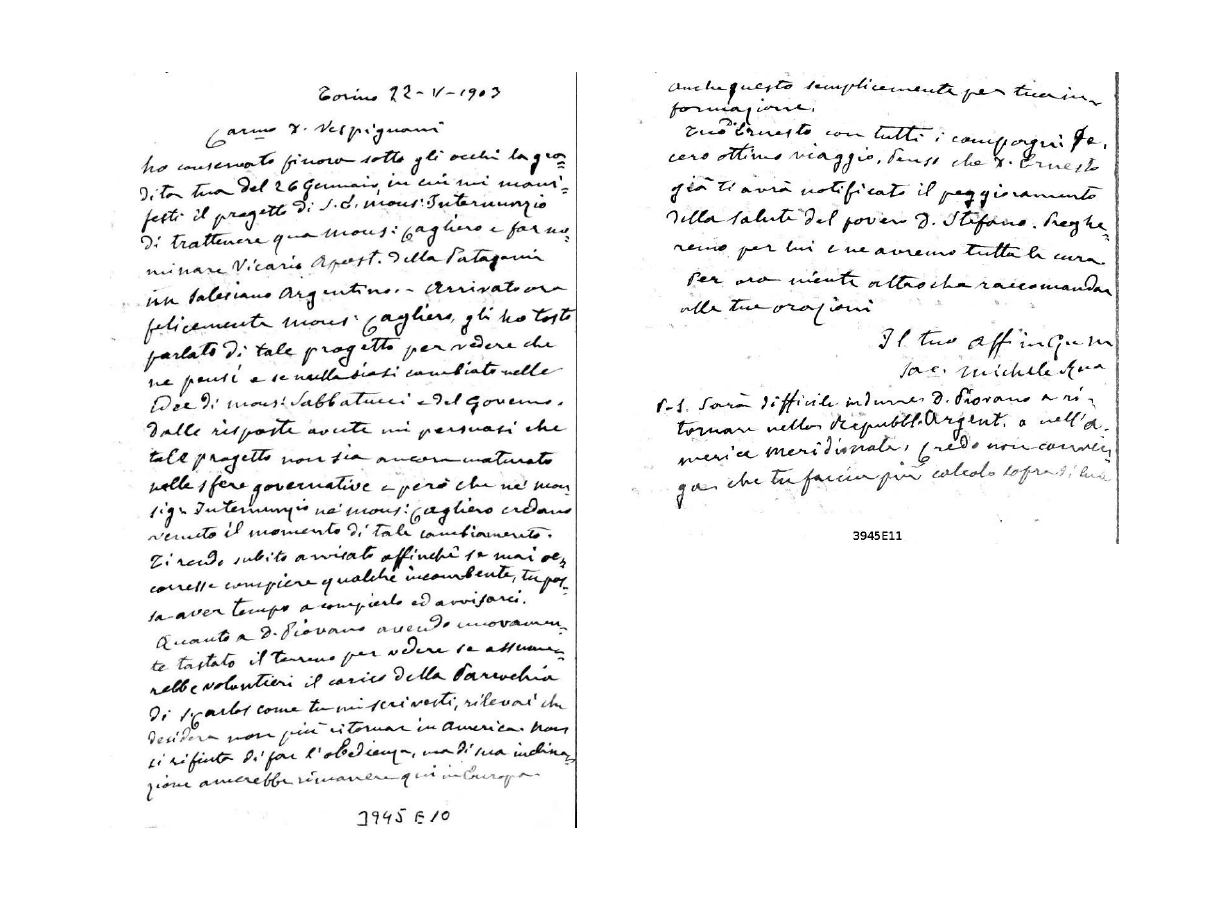 Torino 22-V-1903
Carmo D. Vespignani
ho conservato finora sotto gli occhi la gra=
dita tua del 26 Gennaio, in cui mi mani=
festi il progetto di S. E. Mons: Internunzio
di trattenere qua Mons: Cagliero e far no=
minare Vicario Apost. della Patagonia
un Salesiano Argentino. - Arrivato ora
felicemente Mons: Cagliero, gli ho tosto
parlato di tale progetto per vedere che
ne pensi e se nulla siasi cambiato nelle
idee di Mons: Sabbatucci e del Governo.
Dalle risposte avute mi persuasi che
tale progetto non sia ancora maturato
nelle sfere governative e però che nè mon
sigr Internunzio nè Mons: Cagliero credano
venuto il momento di tale cambiamento.
Ti rendo subito avvisato affinchè se mai oc=
corresse compiere qualche incombente, tu pos=
sa aver tempo a compierlo ed avvisarci.
Quanto a D. Piovano avendo nuovamen=
te tastato il terreno per vedere se assume=
rebbe volontieri il carico della Parrochia
di S. Carlos come tu mi scrivesti, rilevai che
desidera non più ritornar in America. Non
si rifiuta di far l'obedienza, ma di sua inclina=
zione amerebbe rimanere qui in Europa.
3945 E 10
anche questo semplicemente per tua in=
formazione.
Tuo D. Ernesto con tutti i compagni fe=
cero ottimo viaggio. Penso che D. Ernesto
già ti avrà notificato il peggioramento
della salute del povero D. Stefano. Preghe=
remo per lui e ne avremo tutta la cura
Per ora niente altro che raccomandar
alle tue orazioni
Il tuo aff in G. e M
Sac. Michele Rua
P.S. Sarà difficile indurre D. Piovano a ri=
tornare nella Repubbl. Argent. o nell'A=
merica meridionale. Credo non conven
ga che tu faccia più calcolo sopra di lui
3945E11